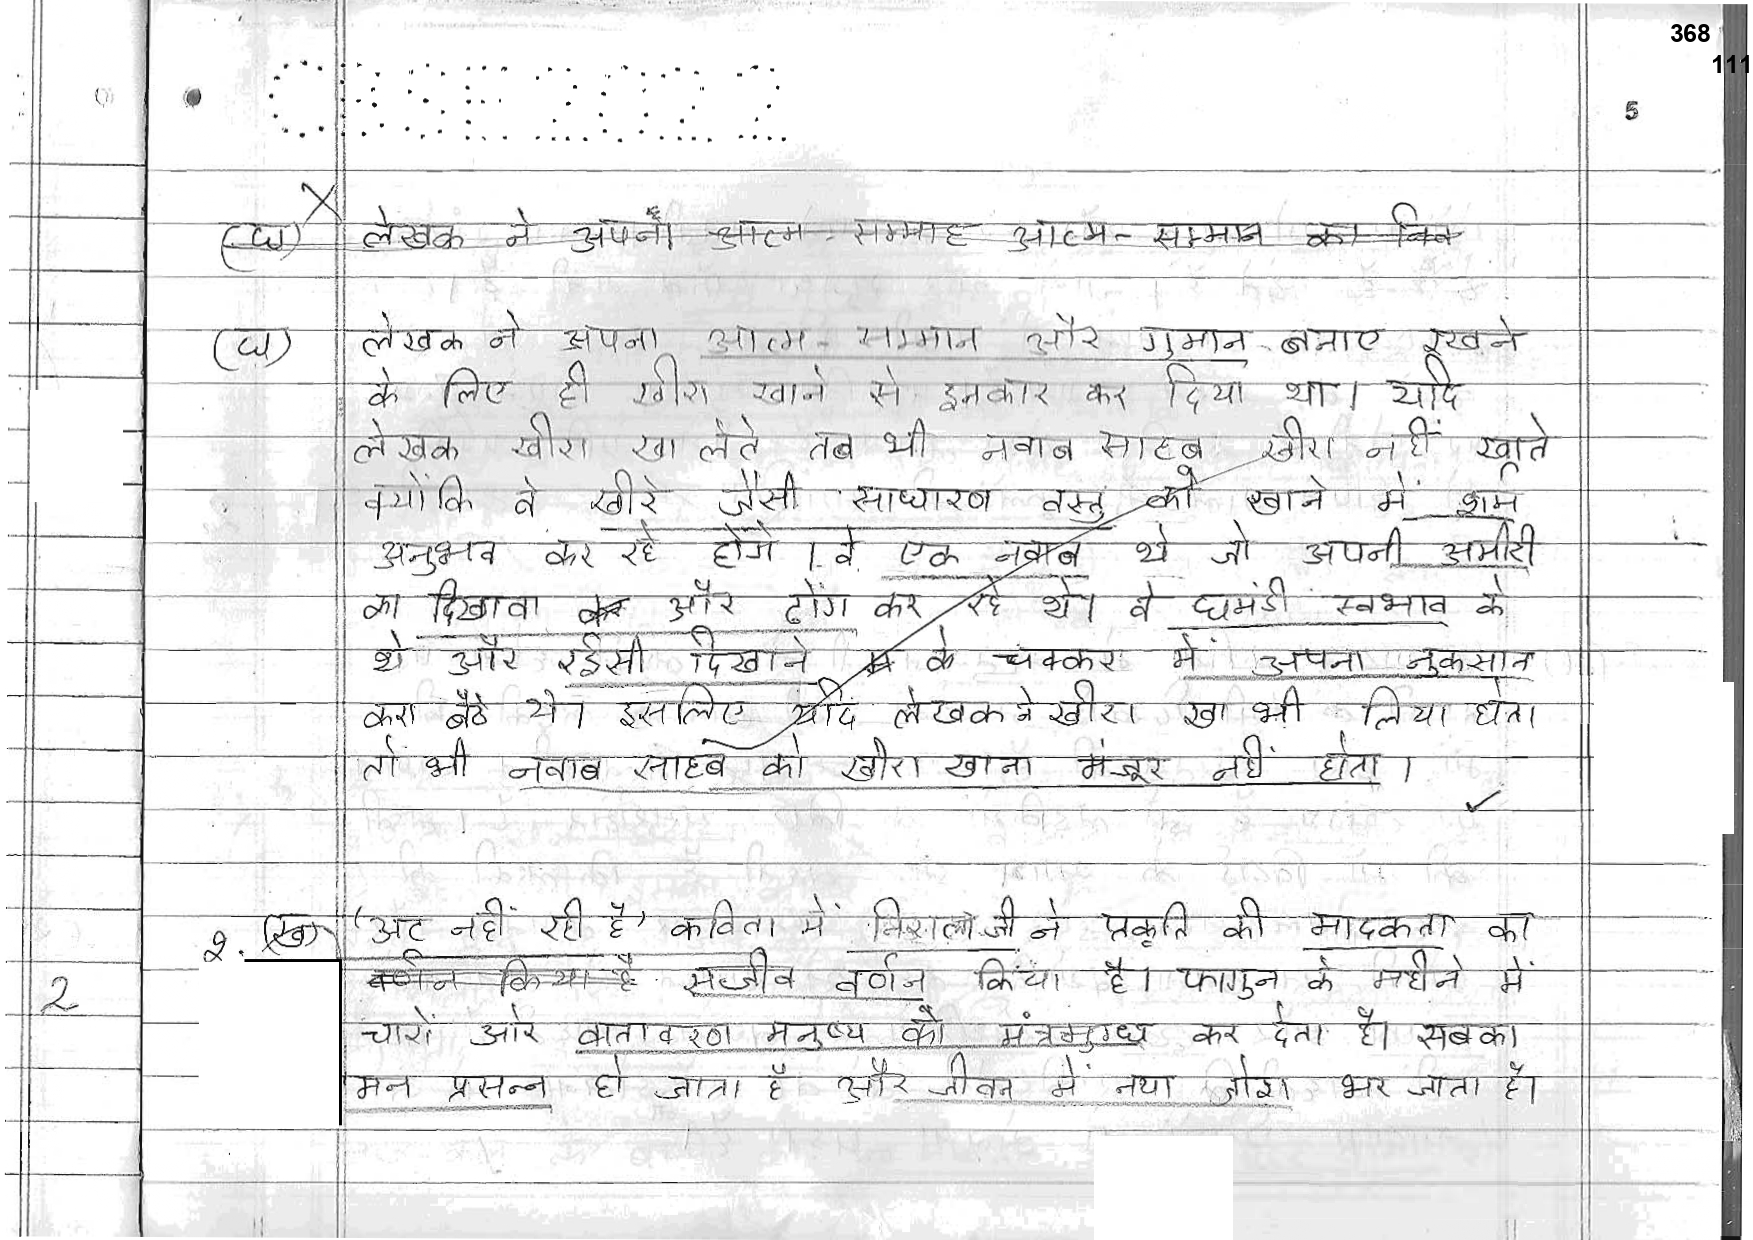 368
111
CBSE 2022
5
(घ) लेखक ने अपने आत्म-सम्माह आत्म-सम्मान का
(घ) लेखक ने अपना आत्म-सम्मान और गुमान बनाए रखने
के लिए ही खीरा खाने से इनकार कर दिया था। यदि
लेखक खीरा खा लेते तब भी नवाब साहब खीरा नहीं खाते
क्योंकि वे खीरे जैसी साधारण वस्तु को खाने में शर्म
अनुभव कर रहे होंगे। वे एक नवाब थे जो अपनी अमीरी
का दिखावा कर और ढोंग कर रहे थे। वे घमंडी स्वभाव के
थे और रईसी दिखाने के चक्कर में अपना नुकसान
करा बैठे थे। इसलिए यदि लेखक ने खीरा खा भी लिया होता
तो भी नवाब साहब को खीरा खाना मंजूर नहीं होता।
२. (ख) 'अट नहीं रही है' कविता में निराला जी ने प्रकृति की मादकता का
वर्णन किया है सजीव वर्णन किया है। फागुन के महीने में
2
चारों ओर वातावरण मनुष्य को मंत्रमुग्ध कर देता है। सबका
मन प्रसन्न हो जाता है और जीवन में नया जोश भर जाता है।